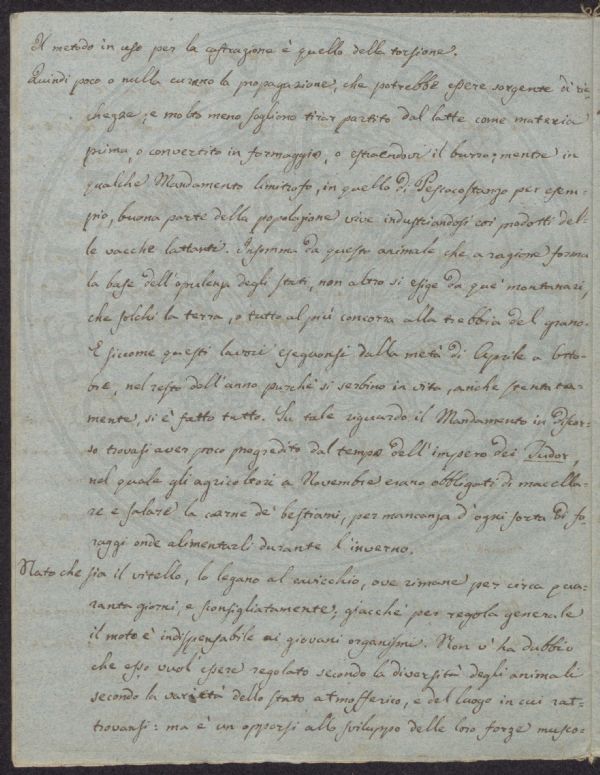 Il metodo in uso per la castrazione è quello della torsione.
Quindi poco o nulla curano la propagazione, che potrebbe essere sorgente di ric-
chezze; e molto meno sogliono tirar partito dal latte come materia
prima, o convertito in formaggio, o estraendovi il burro; mentre in
qualche Mandamento limitrofo, in quello di Pescocostanzo per esem-
pio, buona parte della popolazione vive industriandosi coi prodotti del-
le vacche lattanti. Insomma da questo animale che a ragione forma
la base dell'opulenza degli stati, non altro si esige da que' montanari,
che solchi la terra, o tutto al più concorra alla trebbia del grano.
E siccome questi lavori eseguonsi dalla metà di Aprile a Otto-
bre, nel resto dell'anno purchè si serbino in vita, anche stentata-
mente, si è fatto tutto. Su tale riguardo il Mandamento in discor-
so trovasi aver poco progredito dal tempo dell'impero dei Tudor,
nel quale gli agricoltori a Novembre erano obbligati di macella-
re e salare la carne de' bestiami, per mancanza d'ogni sorta di fo-
raggi onde alimentarli durante l'inverno.
Nato che sia il vitello, lo legano al cavicchio, ove rimane per circa qua-
ranta giorni, e sconsigliatamente, giacchè per regola generale
il moto è indispensabile ai giovani organismi. Non v'ha dubbio
che esso vuol essere regolato secondo la diversità degli animali
secondo la varietà dello stato atmosferico, e del luogo in cui rat-
trovansi: ma è un opporsi allo sviluppo delle loro forze musco-